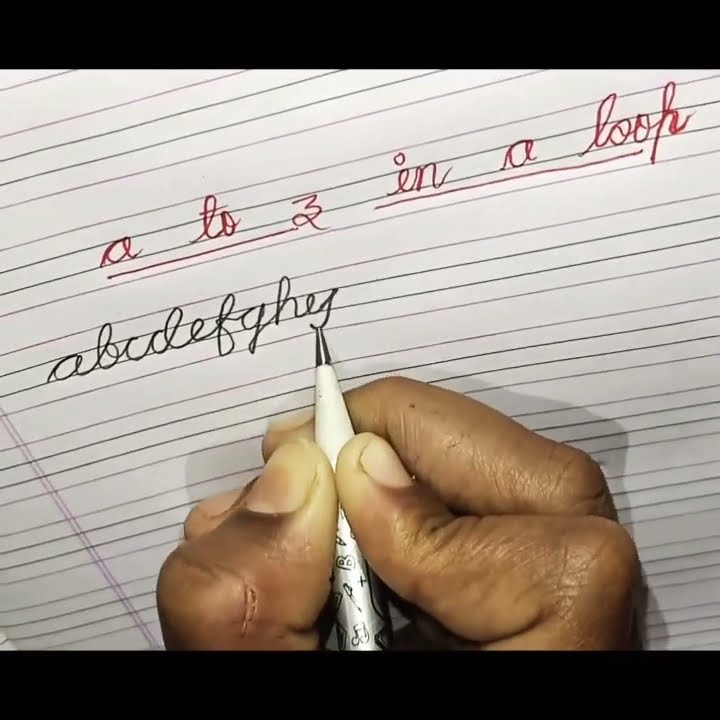 a to z in a loop
abcdefghij